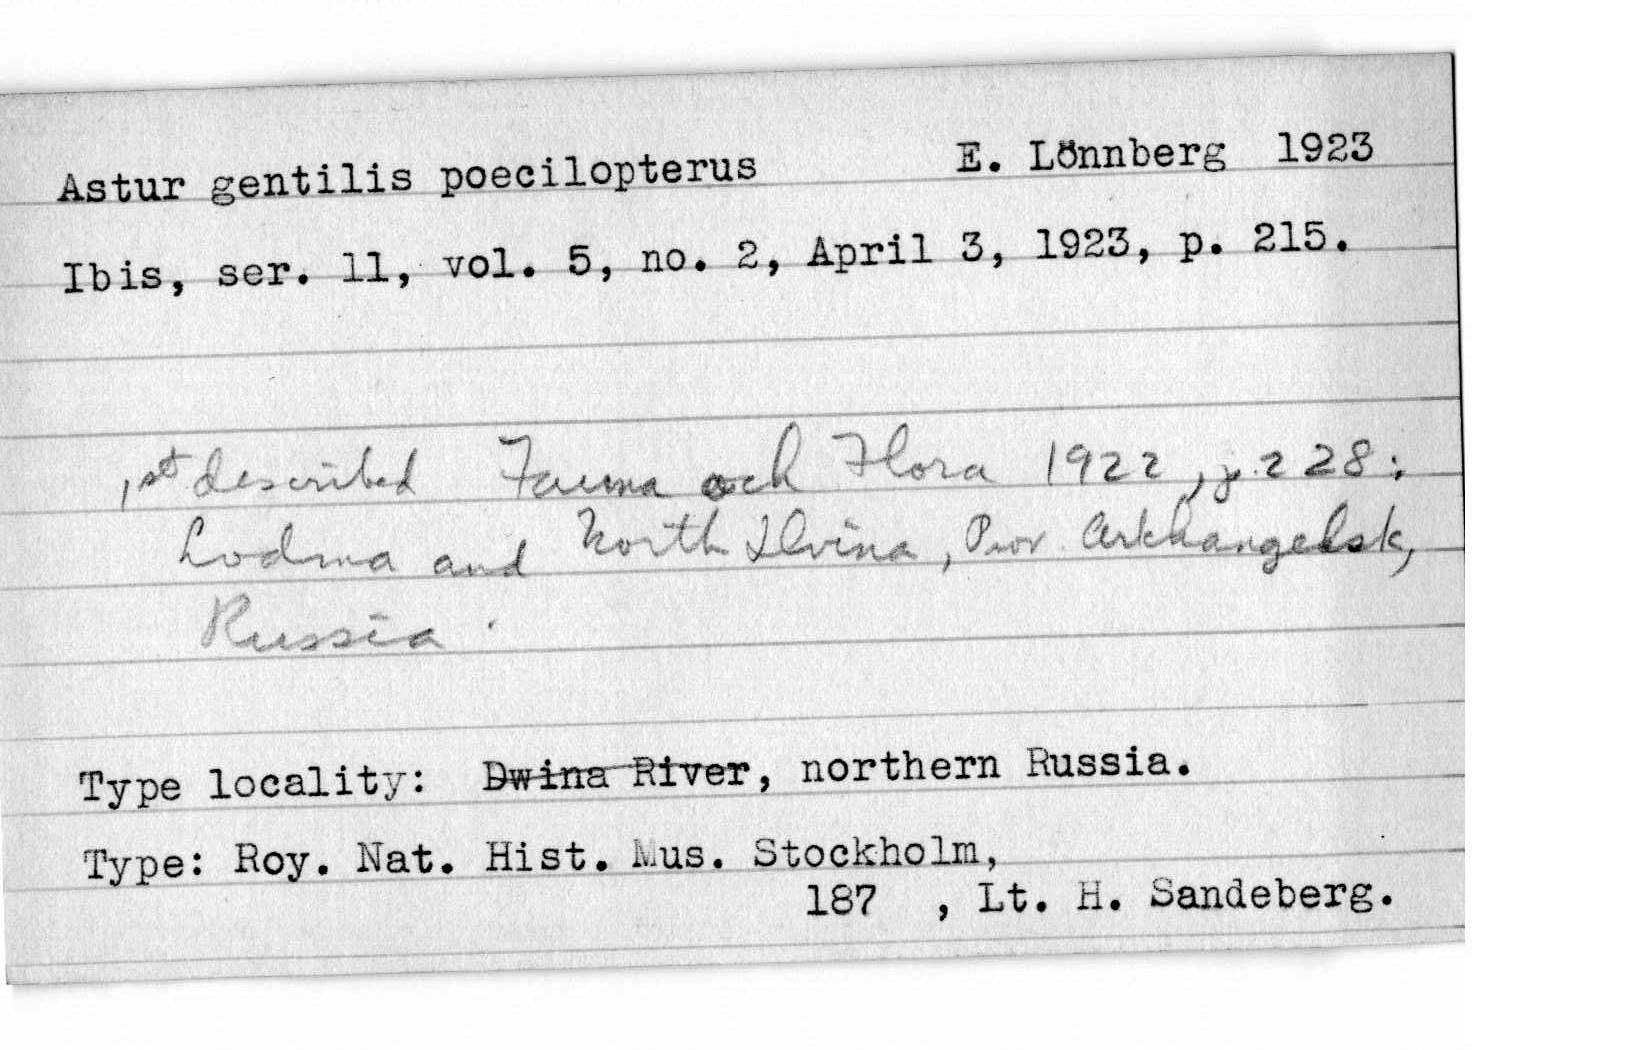 Astur gentilis poecilopterus E. Lönnberg 1923
Ibis, ser. 11, vol. 5, no. 2, April 3, 1923, p. 215.
1st described Fauna och Flora 1922, p. 228;
Lodma and North Dvina, Prov. Arkhangelsk,
Russia.
Type locality: Dwina River, northern Russia.
Type: Roy. Nat. Hist. Mus. Stockholm,
187 , Lt. H. Sandeberg.